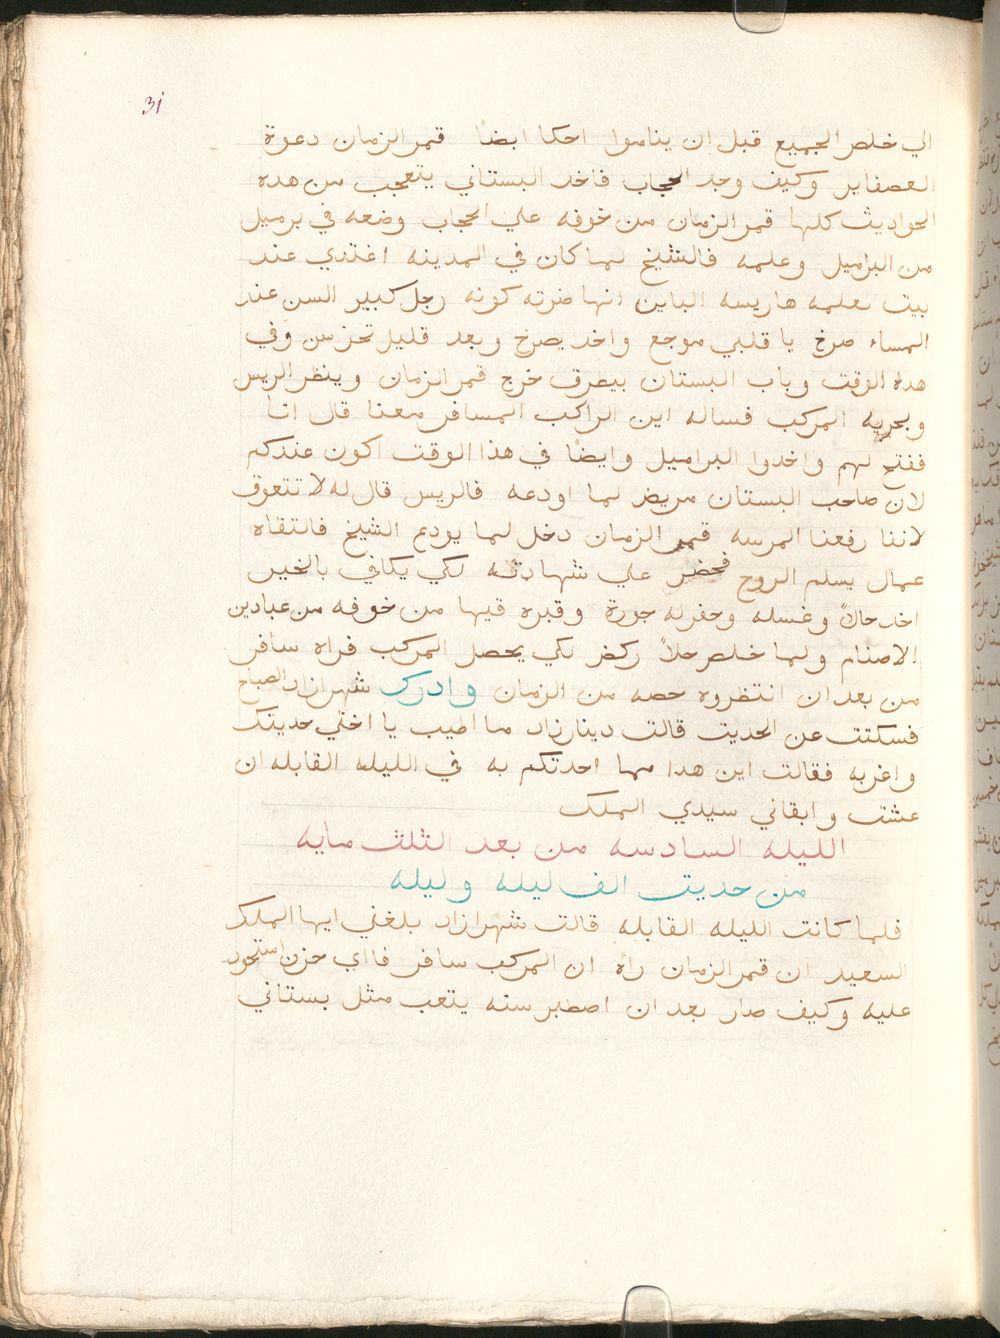 31
الي خلص الجميع قبل ان يناموا احكا ايضاً قمر الزمان دعوة
العصفاير وكيف وجد الحجاب فاخد البستاني يتعجب من هده
الحواديث كلها قمر الزمان من خوفه علي الحجاب وضعه في برميل
من البراميل وعلمه فالشيخ لما كان في المدينه اغتدي عند
بيت هاريسه الباين انها ضرته كونه رجل كبير السن عند
المساء صرخ يا قلبي موجع واخد يصرخ وبعد قليل تخرس وفي
هدا الوقت وباب البستان بيطرق خرج قمر الزمان وينظر الريس
وبحريه المركب فساله اين الراكب المسافر معنا قال انا
ففتح لهم واخدوا البراميل وايضاً في هذا الوقت اكون عندكم
لان صاحب البستان مريض لما اودعه فالريس قال له لا تتعوق
لاننا رفعنا المرسه قمر الزمان دخل لما يودع الشيخ فالتقاه
عمال يسلم الروح فحضر علي شهادته لكي يكافي بالخير
اخد حالاً وغسله وحفر له جورة وقبره فيها من خوفه من عبادين
الاصنام ولما خلص حلاً ركض لكي يحصل المركب فراه سافر
من بعد ان انتظروه حصه من الزمان وادرك شهرازاد الصباح
فسكتت عن الحديت قالت دينارزاد ما اطيب يا اختي حديتك
واغربه فقالت اين هدا مما احدتكم به في الليله القابله ان
عشت وابقاني سيدي الملك
الليله السادسه من بعد الثلث مايه
من حديت الف ليله وليله
فلما كانت الليله القابله قالت شهرازاد بلغني ايها الملك
السعيد ان قمر الزمان رأه ان المركب سافر فااي حزن استحود
عليه وكيف صار بعد ان اصطبر سنه يتعب مثل بستاني